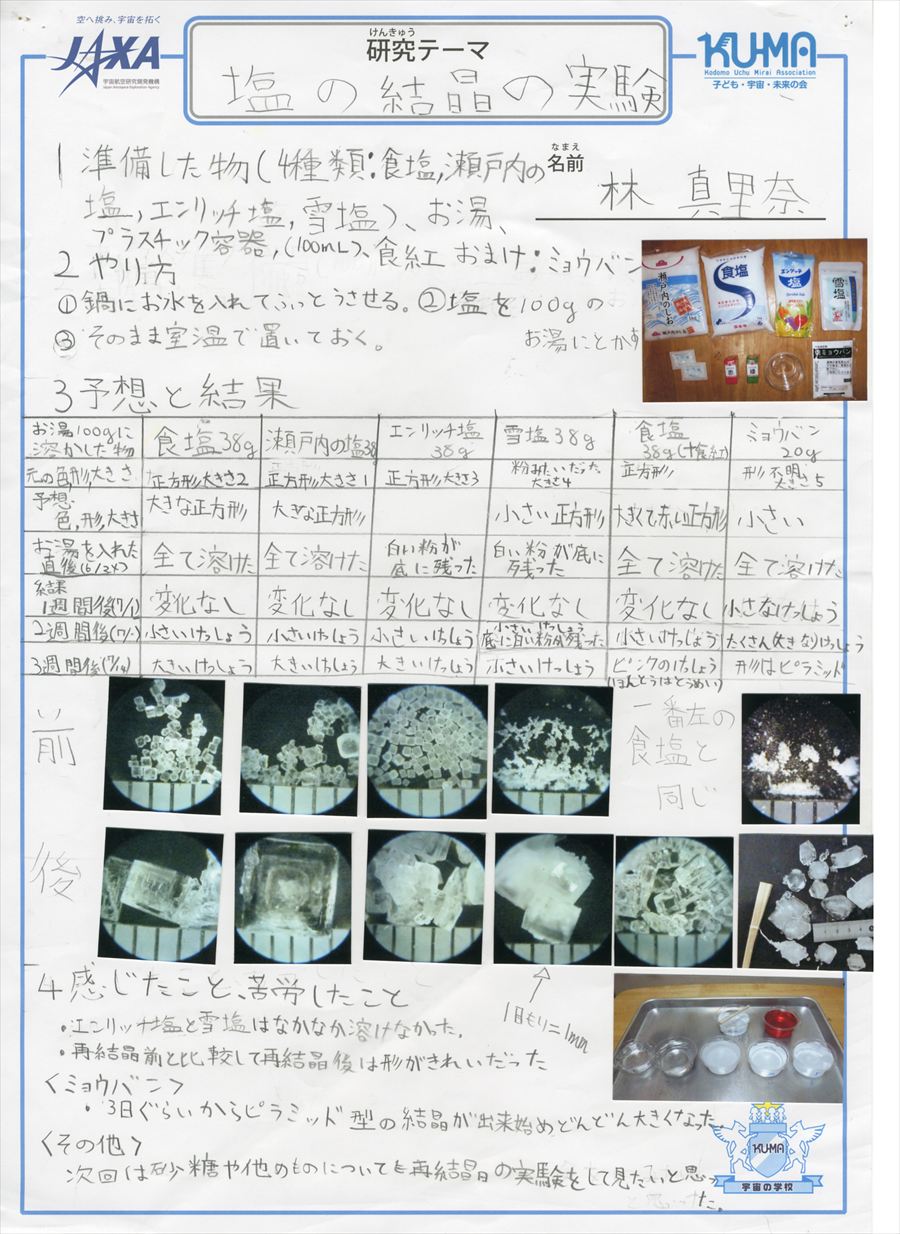 空へ挑み、宇宙を拓く
JAXA
宇宙航空研究開発機構
Japan Aerospace Exploration Agency
けんきゅう
研究テーマ
塩の結晶の実験
KUMA
Kodomo Uchu Mirai Association
子ども・宇宙・未来の会
1 準備した物(4種類:食塩,瀬戸内の
塩,エンリッチ塩,雪塩)、お湯、
プラスチック容器,(100mL)、食紅 おまけ:ミョウバン
なまえ
名前
林 真里奈
2 やり方
①鍋にお水を入れてふっとうさせる。②塩を100gの
お湯にとかす
③そのまま室温で置いておく。
瀬戸内のしお
食塩
エンリッチ
塩
雪塩
ミョウバン
3 予想と結果
お湯100gに溶かした物 食塩38g 瀬戸内の塩38g エンリッチ塩38g 雪塩38g 食塩38g(+食紅) ミョウバン20g
元の色,形,大きさ 正方形,大きさ2 正方形,大きさ1 正方形,大きさ3 粉みたいだった大きさ4 正方形 形不明,大きさ5
予想色,形,大きさ 大きな正方形 大きな正方形 小さい正方形 大きくて赤い正方形 小さい
お湯を入れた直後(6/24) 全て溶けた 全て溶けた 白い粉が底に残った 白い粉が底に残った 全て溶けた 全て溶けた
結果1週間後(7/1) 変化なし 変化なし 変化なし 変化なし 変化なし 小さなけっしょう
2週間後 小さいけっしょう 小さいけっしょう 小さいけっしょう 小さいけっしょう底に白い粉が残った 小さいけっしょう たくさん(大きな)けっしょう
3週間後(7/14) 大きいけっしょう 大きいけっしょう 大きいけっしょう 小さいけっしょう ピンクのけっしょう(ほんとうはとうめい) 形はピラミッド
前
一番左の
食塩と
同じ
後
1目もり=1mm
4 感じたこと、苦労したこと
・エンリッチ塩と雪塩はなかなか溶けなかった。
・再結晶前と比較して再結晶後は形がきれいだった
<ミョウバン>
・3日ぐらいからピラミッド型の結晶が出来始めどんどん大きくなった。
<その他>
次回は砂糖や他のものについても再結晶の実験をして見たいと思っ
た。
KU-MA
宇宙の学校